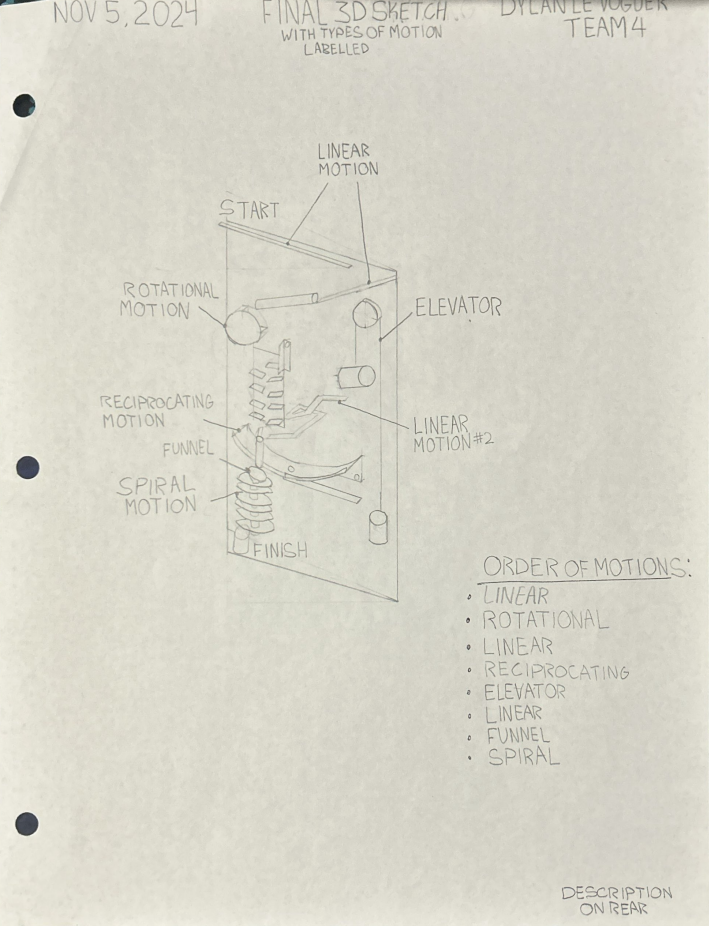 NOV 5, 2024
FINAL 3D SKETCH
DYLAN LE VOGUER
WITH TYPES OF MOTION
TEAM 4
LABELLED
LINEAR
MOTION
START
ROTATIONAL
MOTION
ELEVATOR
RECIPROCATING
MOTION
LINEAR
MOTION #2
FUNNEL
SPIRAL
MOTION
FINISH
ORDER OF MOTIONS:
• LINEAR
• ROTATIONAL
• LINEAR
• RECIPROCATING
• ELEVATOR
• LINEAR
• FUNNEL
• SPIRAL
DESCRIPTION
ON REAR